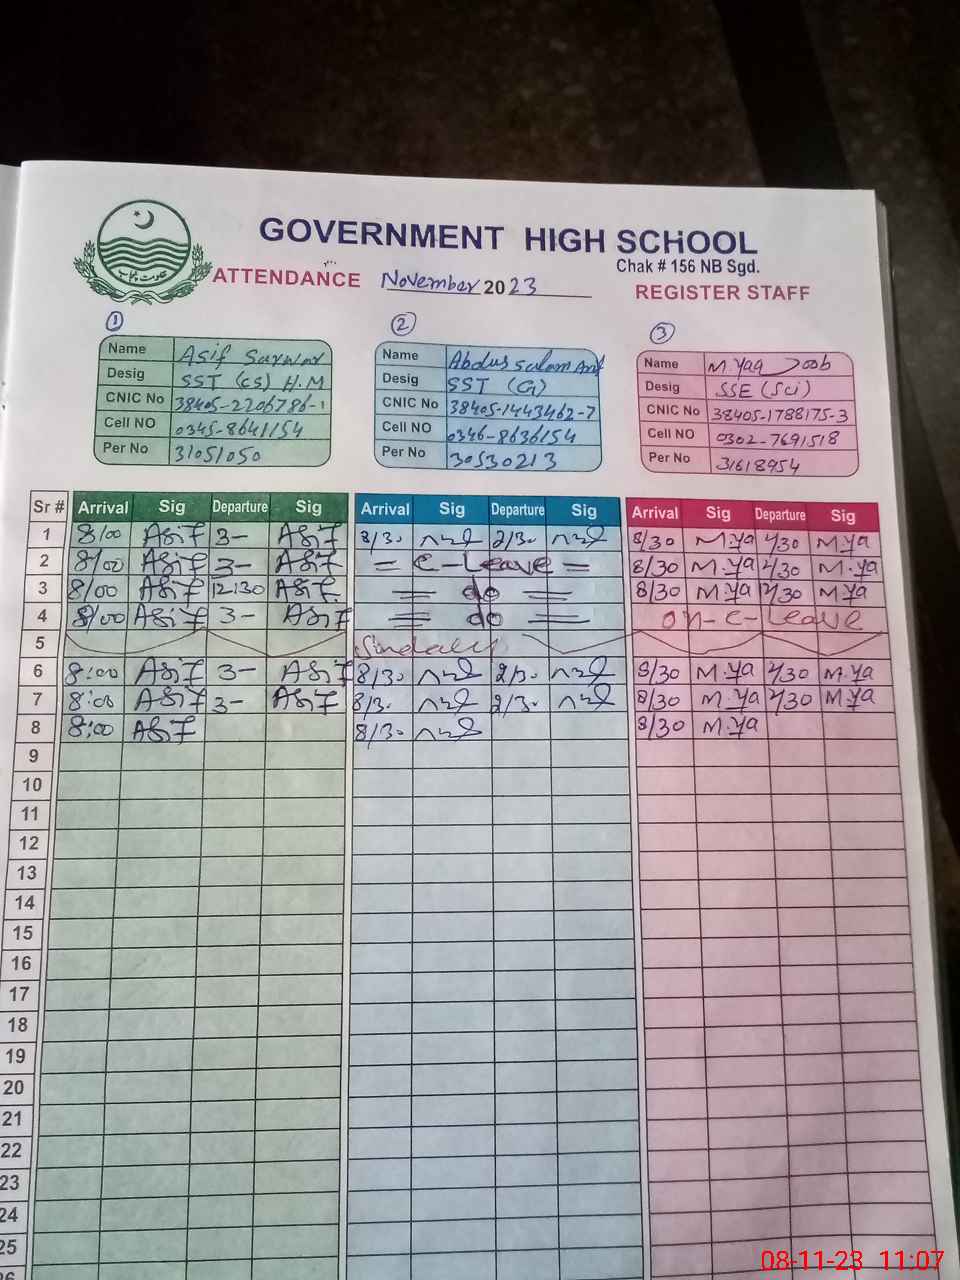 GOVERNMENT HIGH SCHOOL
Chak # 156 NB Sgd.
حکومت پنجاب
ATTENDANCE November 2023 REGISTER STAFF
1 2 3
Name Asif Sarwar
Desig SST (CS) H.M
CNIC No 38405-2206786-1
Cell NO 0345-8641154
Per No 31051050
Name Abdus Salam
Desig SST (G)
CNIC No 38405-1443462-7
Cell NO 0346-8636154
Per No 30530213
Name M. Yaqoob
Desig SSE (Sci)
CNIC No 38405-1788175-3
Cell NO 0302-7691518
Per No 31618954
Sr # Arrival Sig Departure Sig Arrival Sig Departure Sig Arrival Sig Departure Sig
1 8/00 Asif 3- Asif 8/30 2/30 8/30 M.Ya 2/30 M.Ya
2 8/00 Asif 3- Asif = C-Leave = 8/30 M.Ya 2/30 M.Ya
3 8/00 Asif 12:30 Asif = do = 8/30 M.Ya 12/30 M.Ya
4 8/00 Asif 3- Asif = do = on-C-Leave
5
6 8:00 Asif 3- Asif 8/30 2/30 8/30 M.Ya 2/30 M.Ya
7 8:00 Asif 3- Asif 8/30 2/30 8/30 M.Ya 2/30 M.Ya
8 8:00 Asif 8/30 8/30 M.Ya
9
10
11
12
13
14
15
16
17
18
19
20
21
22
23
24
25
26
08-11-23 11:07